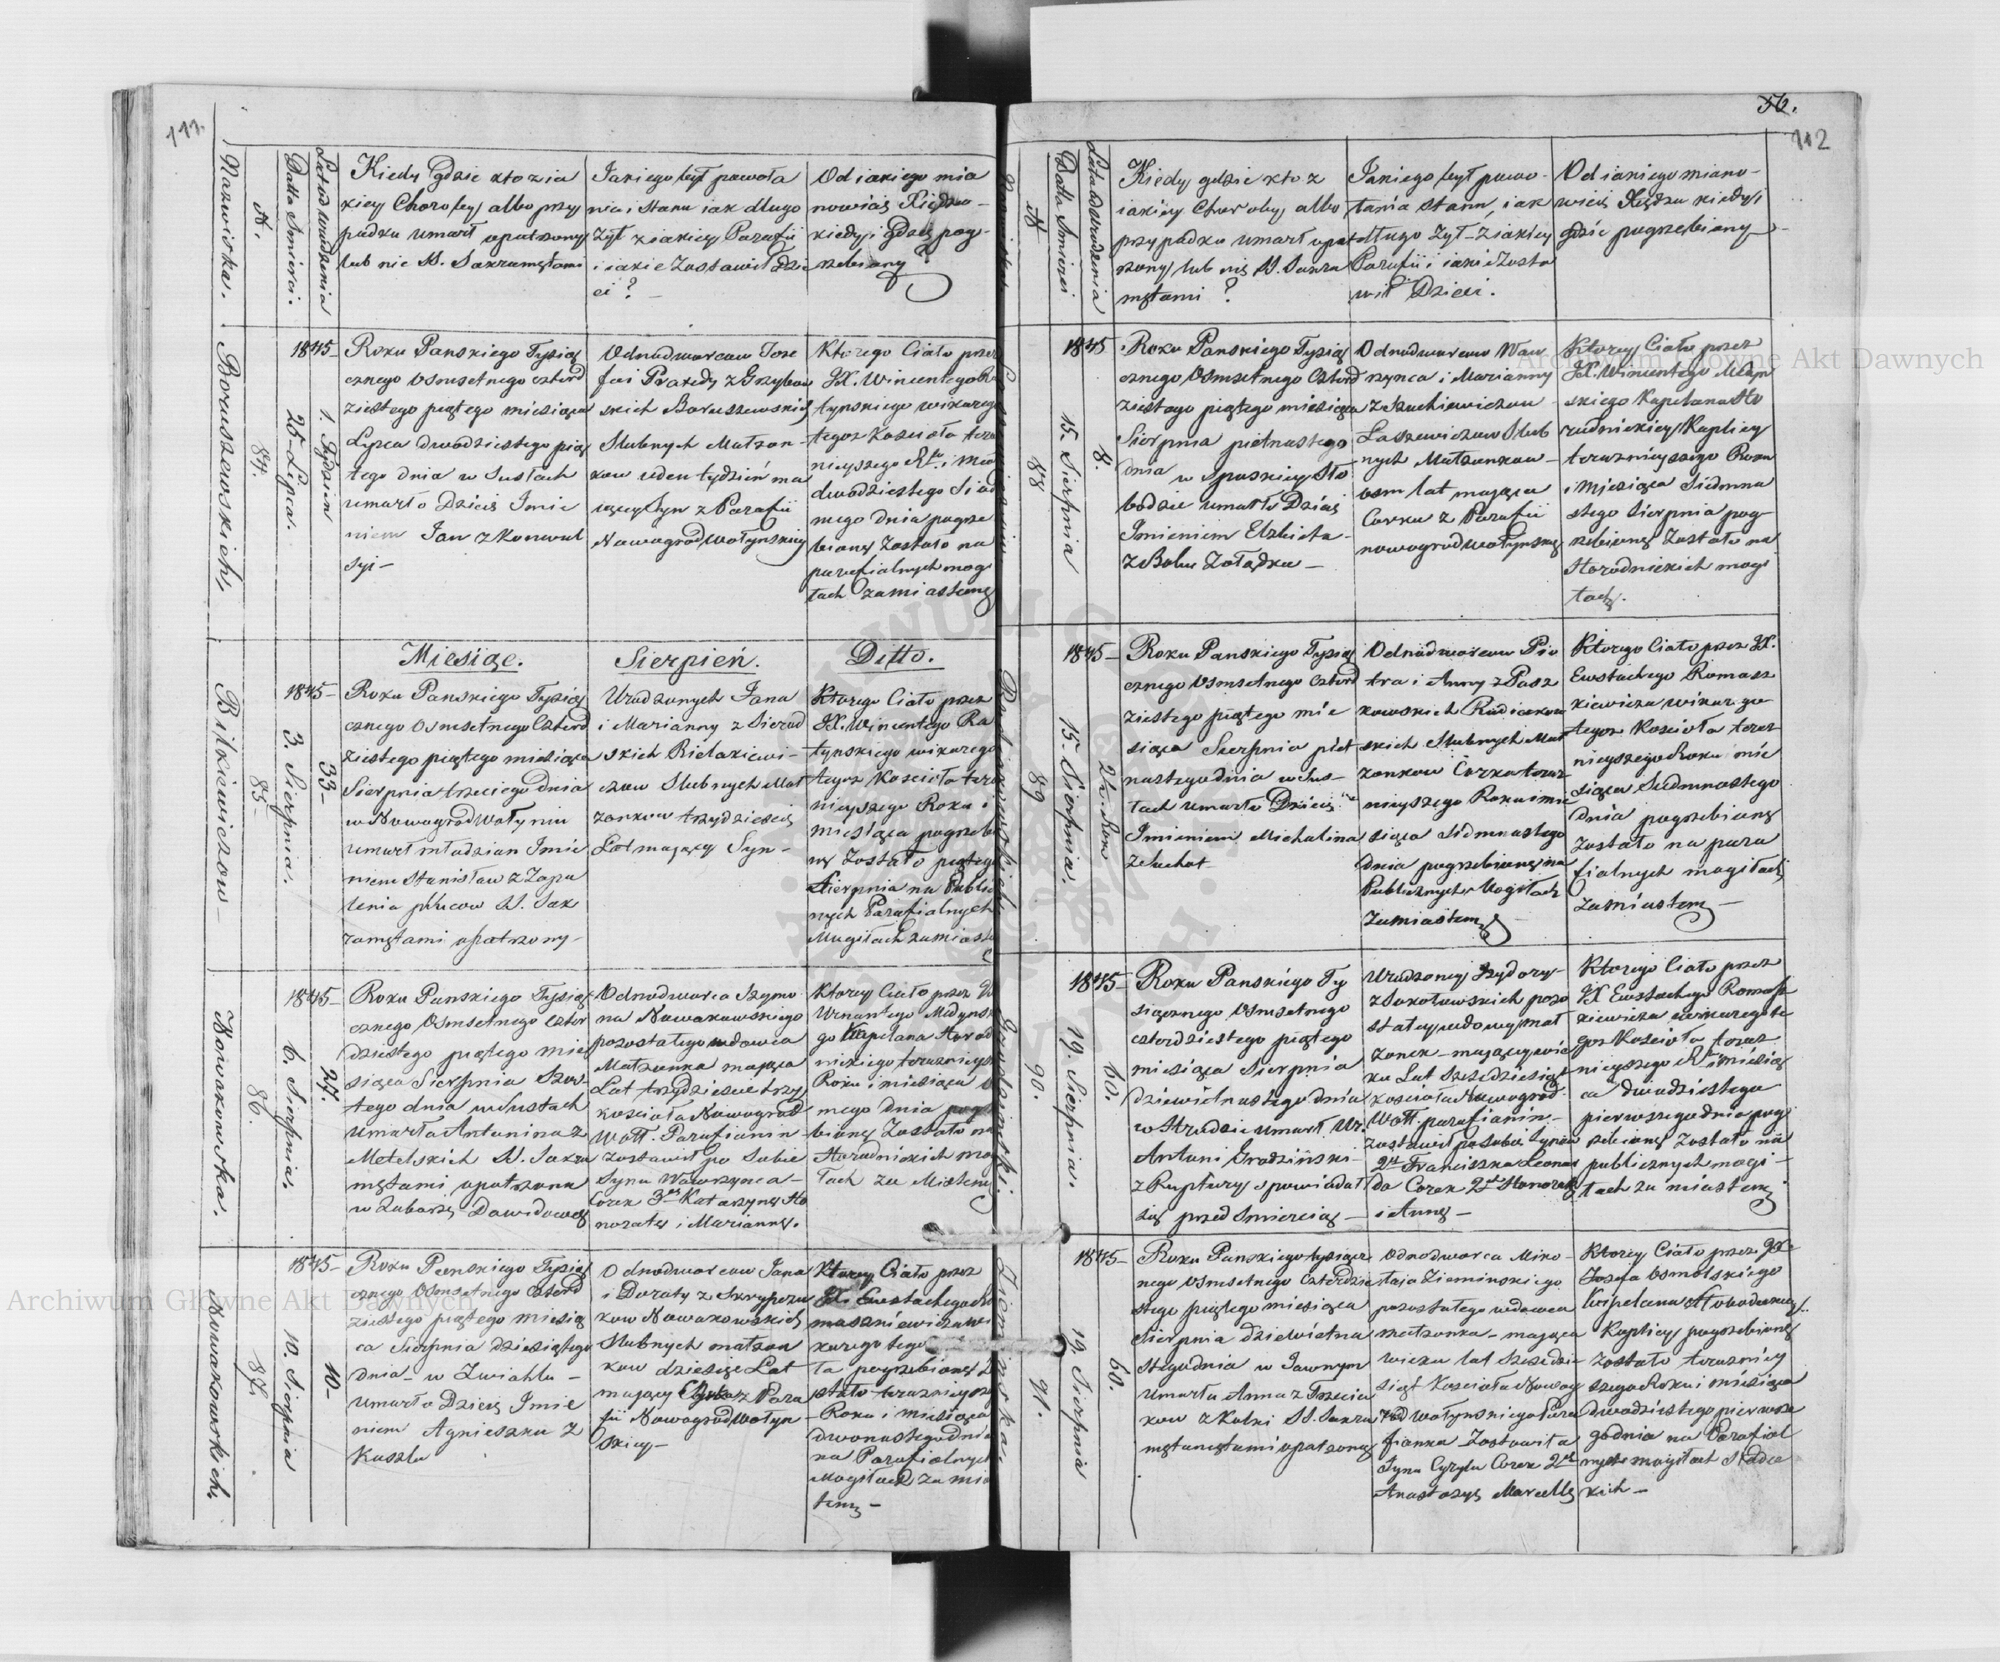 111.
Nazwiska.
N.
Datta Smierci.
Lat od urodzenia
Kiedy gdzie kto z ja
kiey Choroby albo przy
padku umarł opatrzony
lub nie SS. Sakramętami
Jakiego był powoła
nia i stanu iak długo
żył z iakiey Parafii
i iakie zostawił dzie
ci?
Od iakiego mia
nowicie Xiędza
kiedy i gdzie pog-
rzebiony
Boruszewskich
84.
1845
25 Lipca.
1. Tydzień
Roku Panskiego Tysiąc
cznego Osmsetnego czterd
ziestego piątego miesiąca
Lipca dwudziestego pią
tego dnia w Suslach
umarło Dziecię Imie
niem Jan z Konwul
syi
Od nodworcow Joze
fa i Praxedy z Grzybow
skich Boruszewskich
Slubnych Małżon
kow ieden tydzień ma
iący Syn z Parafii
Nowogradwołynskiey
Ktorego Ciało przez
JX. Wincentego Ra
tynskiego wikarego
tegoż Kościoła tera
nieyszego Rku i Mie
dwódziestego Siód
mego dnia pogrze
bione Zostało na
parafialnych mog
iłach za miastem
Miesiąc.
Sierpień.
Ditto.
Bilkiewiczow
85
1845
3. Sierpnia.
33
Roku Panskiego Tysiąc
cznego Osmsetnego Czterd
ziestego piątego miesiąca
Sierpnia trzeciego dnia
w Nowogradwołyniu
umarł młodzian Imie
niem Stanisław z Zapa
lenia płucow SS. Sak
ramętami opatrzony
Urodzonych Jana
i Marianny z Sierad
skich Bielakiewi-
czow Slubnych Mał
żonkow trzydzieście
Lat maiący Syn
Ktorego Ciało przez
JX. Wincentego Ra
tynskiego wikarego
tegoż Kościoła tera
nieyszego Roku i
miesiąca pogrzebio
ne Zostało piątego
Sierpnia na Publi
cznych Parafialnych
Mogiłach za miast
Nowakowska.
86.
1845
6. Sierpnia.
27.
Roku Panskiego Tysiąc
cznego Osmsetnego czter
dziestego piątego mie
siąca Sierpnia Szos
tego dnia w Suslach
umarła Antonina z
Metelskich SS. Sakra
mętami opatrzona
w Lubarze Dawidowce
Od nodworca Szymo
na Nowakowskiego
pozostałego wdowca
Małżonka maiąca
Lat trzydzieście trzy
kościoła Nowograd
Woł. Parafianin
zostawił po Sobie
Syna Wawrzynca
Corek 3 Katarzynę Ho
noratę i Mariannę.
Ktorey Ciało przez W
Wincentego Medyns
go Kapelana Horod
nickiego teraznieysz
Roku i miesiąca
mego dnia pogr
bione Zostało na
Horodnickich mog
iłach za Miastem
Nowakowskich
87.
1845
10. Sierpnia
10
Roku Panskiego Tysiąc
cznego Osmsetnego Czterd
ziestego piątego miesią
ca Sierpnia dziesiątego
dnia w Zwiahlu
umarło Dziecię Imie
niem Agnieszka z
Kaszlu
Od nodworcow Jana
i Doroty z Skrypcza
kow Nowakowskich
Slubnych małżon
kow dziesięć Lat
maiący Corka z Para
fii Nowogradwołyn
skiey
Ktorey Ciało przez
JX. Eustachego Ro
maszkiewicza wi
karego tego
ła pogrzebione Zo
stało teraznieysz
Roku i miesiąca
dwonastego dnia
na Parafialnych
Mogiłach za mia
stem
56.
112
Nazwiska
N
Datta Smierci
Lata od urodzenia
Kiedy gdzie kto z
iakiey Choroby albo
przypadku umarł opat
rzony lub nie SS. Sakra
mętami?
Jakiego był powo-
łania stanu, iak
długo żył z iakiey
Parafii i iakie zosta
wił Dzieci.
Od iakiego miano-
wicie Xiędza kiedy i
gdzie pogrzebiony
88
1845
15. Sierpnia
8.
Roku Panskiego Tysią
cznego Osmsetnego Czterd
ziestego piątego miesiąca
Sierpnia piętnastego
dnia w Spaskiey Sło
bodzie umarło Dziecię
Imieniem Elzbieta
z Bolu Żołądka
Od nodworcow Waw
rzynca i Marianny
z Suchiewiczow
Laszewiczow Slub
nych Małżonkow
osm lat maiąca
Corka z Parafii
nowogradwołynskiey
Ktorey Ciało przez
JX. Wincentego Medyn
skiego Kapelana Ho
rodnickiey Kaplicy
teraznieyszego Roku
i Miesiąca Siedmna
stego Sierpnia pog-
rzebione Zostało na
Horodnickich mogi
łach.
89
1845
15. Sierpnia.
Roku Panskiego Tysią
cznego Osmsetnego Czterd
ziestego piątego mie
siąca Sierpnia pięt
nastego dnia w Sus-
łach umarło Dziecię
Imieniem Michalina
z Suchot
Od nodworcow Pio
tra i Anny z Pasz
kowskich Rudiakow
skich Slubnych Mał
żonkow Corka teraz
nieyszego Roku i mie
siąca siedmnastego
dnia pogrzebione na
Publicznych Mogiłach
za miastem
Ktorego Ciało przez JX.
Eustachego Romasz
kiewicza wikarego
tegoż Kościoła teraz
nieyszego Roku mie
siąca Siedmnastego
dnia pogrzebione
Zostało na para
fialnych mogiłach
za miastem
Grodzinski.
90.
1845
19. Sierpnia.
60.
Roku Panskiego Ty
siącznego Osmsetnego
czterdziestego piątego
miesiąca Sierpnia
dziewiętnastego dnia
w Hrudzie umarł Ur.
Antoni Grodzinski
z Ruptury spowiadał
się przed Smiercią
Urodzoney Izydory
z Sokołowskich pozo
stałey wdowy mał
żonek maiący wie
ku Lat Szesdziesiąt
kościoła Nowograd
Woł parafianin
zostawił po sobie Synow
2ch Franciszka Leonar
da Corek 2ch Honoratę
i Annę
Ktorego Ciało przez
JX Eustachego Romasz
kiewicza wikarego te
goż Kościoła teraz
nieyszego Rku miesią
ca dwudziestego
pierwszego dnia pog
rzebione Zostało na
publicznych mogi-
łach za miastem
Zieminska
91.
1845
19. Sierpnia
60.
Roku Panskiego tysiącz
nego Osmsetnego Czterdzie
stego piątego miesiąca
Sierpnia dziewiętna
stego dnia w Jawnym
umarła Anna z Trzecia
kow z Kolki SS. Sakra
mętamętami opatrzona
Od nodworca Miko-
łaja Zieminskiego
pozostałego wdowca
małżonka maiąca
wieku lat Szezdzie
siąt Kościoła Nowog
rad wołynskiego Para
fianka Zostawiła
Syna Cyryla Corek 2ch
Anastazyę Marcellę
Ktorey Ciało przez JX
Jozefa Osmolskiego
Kapelana Słobodeckiey
Kaplicy pogrzebione
Zostało terazniey
szego Roku i miesiąca
dwudziestego pierwsze
go dnia na Parafial
nych mogiłach
kich
Archiwum Główne Akt Dawnych
Archiwum Główne Akt Dawnych